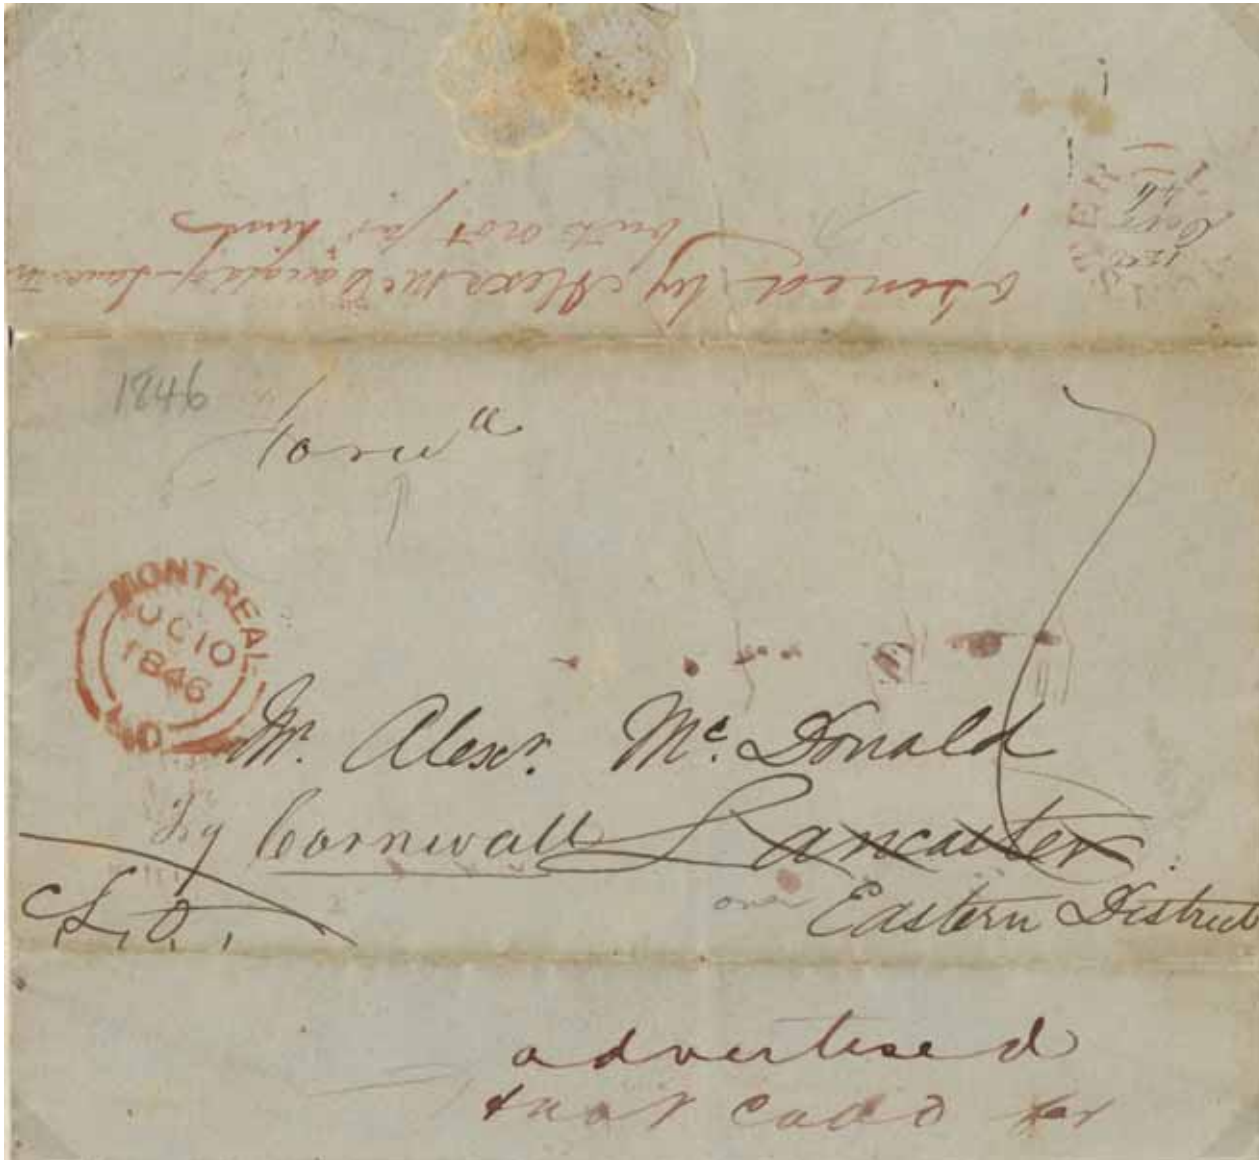 opened by Alexr McDonald
but not for him
1846
Forwd
MONTREAL
OC 10
1846
Mr. Alexr. McDonald
Try Cornwall Lancaster
over Eastern District
advertised
& not calld for